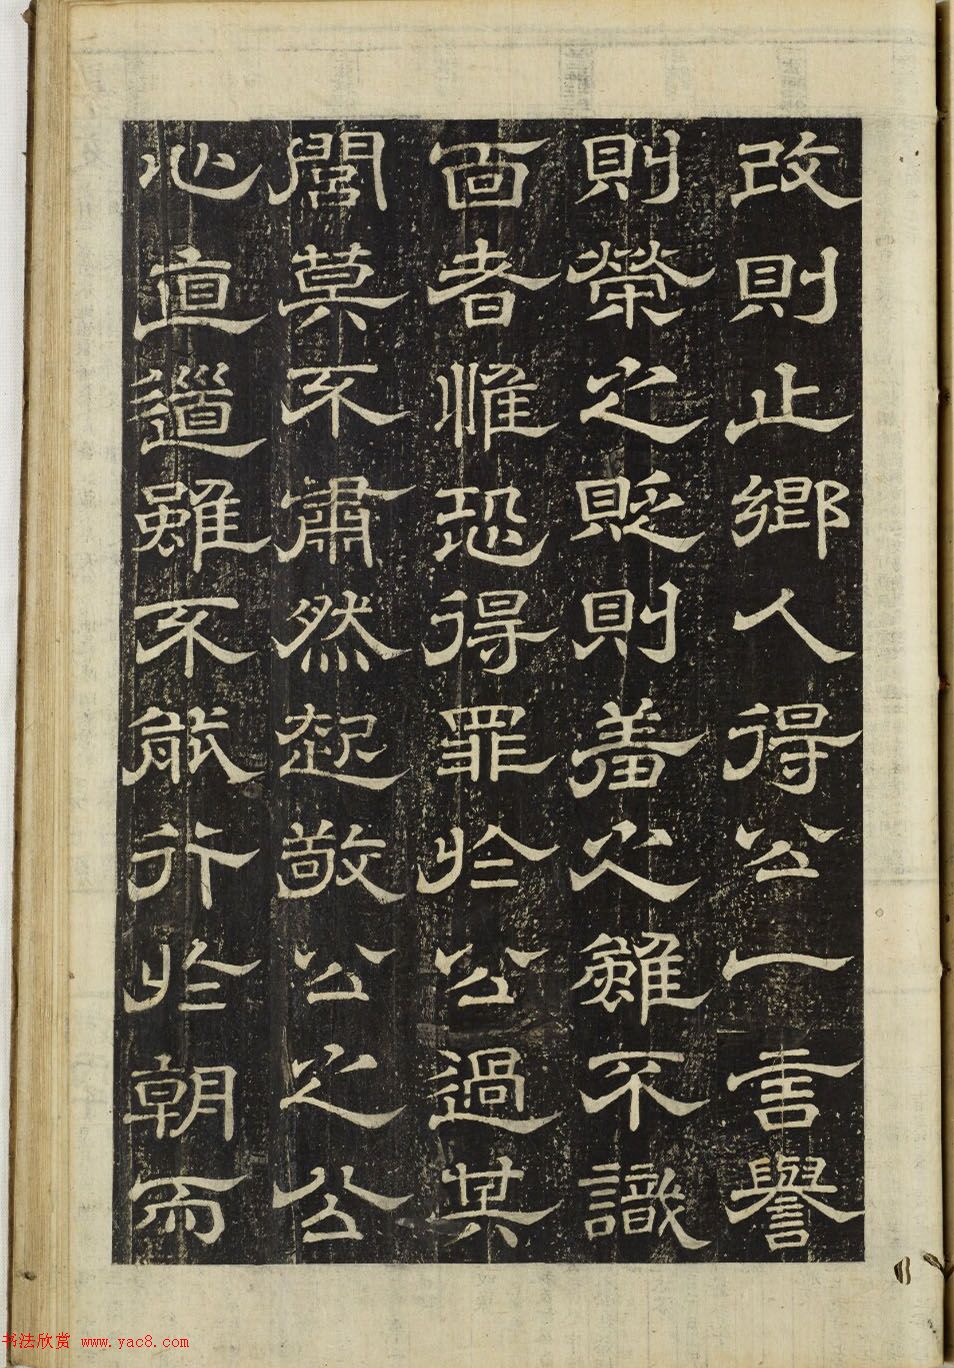 改則止鄉人得公一言譽
則榮之貶則羞之雖不識
面者惟恐得罪於公過其
閭莫不肅然起敬公之公
心直道雖不能行於朝而
书法欣赏 www.yac8.com